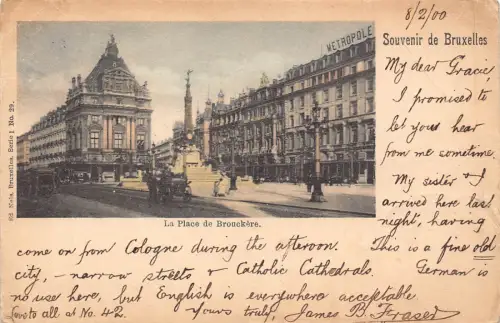 8/2/00
METROPOLE
Souvenir de Bruxelles
My dear Gracie,
I promised to
let you hear
from me sometime.
My sister & I
arrived here last
night, having
68 Nels, Bruxelles, Serie 1 No. 29.
La Place de Brouckère.
come on from Cologne during the afternoon. This is a fine old
city, - narrow streets & Catholic Cathedrals. German is
no use here, but English is everywhere acceptable.
Love to all at No. 42. Yours truly, James B. Fraser